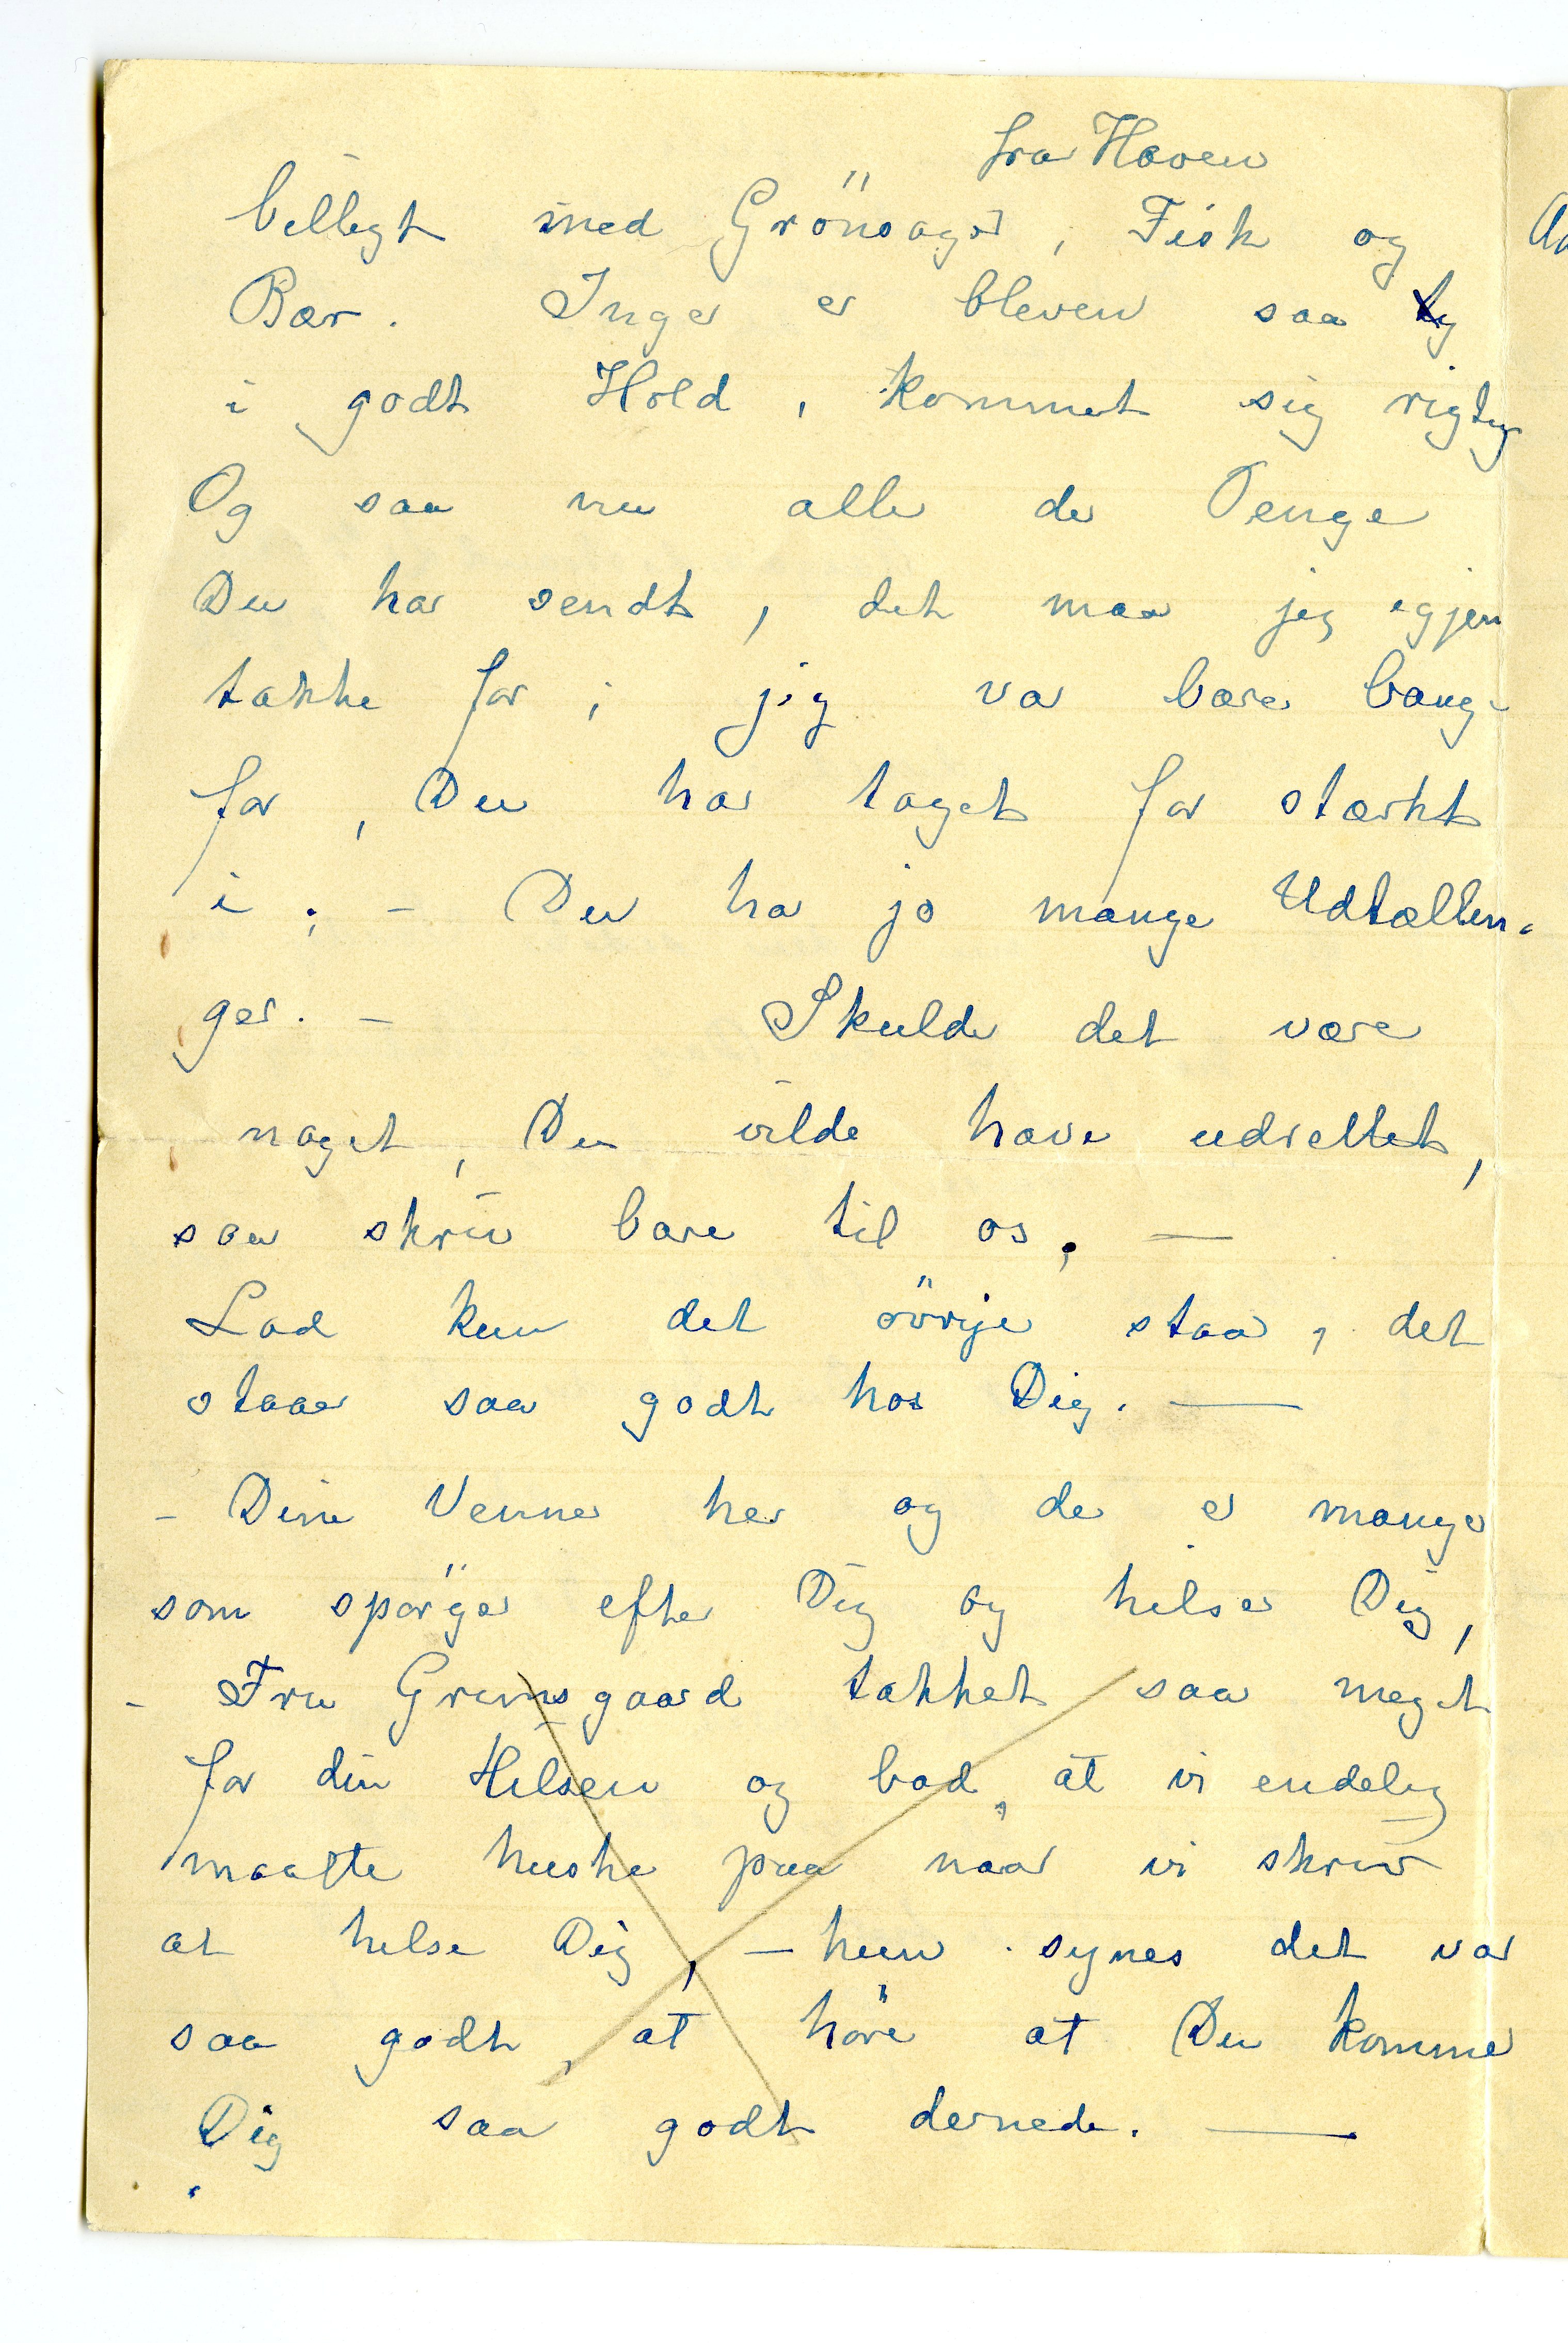 fra Haven
billigt med Grönsager, Fisk og
Bær. Inger er bleven saa
i godt Hold, kommet sig rigtig
Og saa nu alle de Penge
Du har sendt, det maa jeg igjen
takke for; jeg var bare bange
for, Du har taget for stærkt
i; – Du har jo mange Udtællin-
ger. – Skulde det være
noget, Du vilde have udrettet,
saa skriv bare til os, —
Lad kun det övrige staa, det
staar saa godt hos Dig. —
– Dine Venner her og de er mange
som spörger efter Dig og hilser Dig,
– Fru Gramsgaard takket saa meget
for din Hilsen og bad, at vi endelig
maatte huske paa naar vi skrev
at hilse Dig, – hun synes det var
saa godt, at höre at Du kommer
Dig saa godt dernede. —